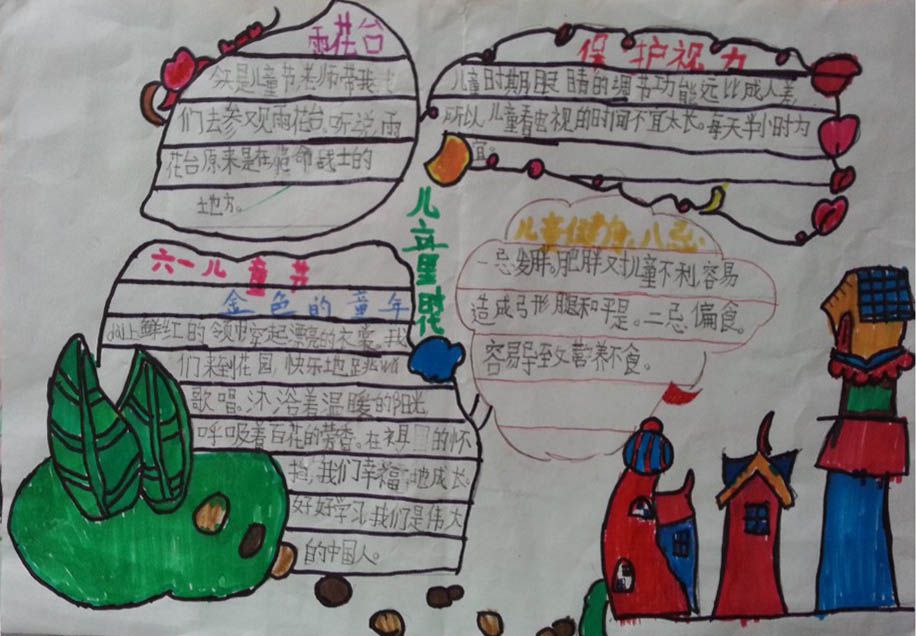 雨花台
六一儿童节老师带我
们去参观雨花台。听说,雨
花台原来是在革命战士的
地方。
保护视力
儿童时期眼睛的调节功能远比成人差
所以儿童看电视的时间不宜太长。每天半小时为
宜。
儿童里时花
儿童健康八忌
一忌发胖。肥胖对儿童不利,容易
造成弓形腿和平足。二忌偏食。
容易导致营养不食。
六一儿童节
金色的童年
dai上鲜红的领巾穿起漂亮的衣裳。我
们来到花园,快乐地跳
歌唱。沐浴着温暖的阳光,
呼吸着百花的芳香。在祖的怀
抱,我们幸福地成长。
好好学习,我们是伟大
的中国人。